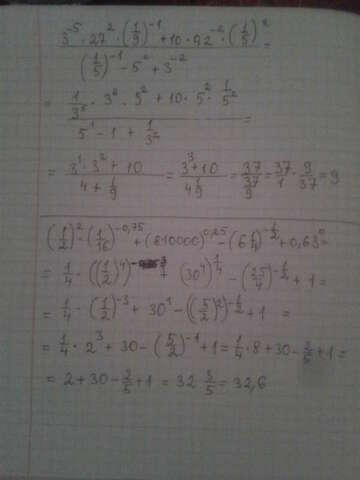 3⁻⁵ · 27² · (1/9)⁻¹ + 10 · 92⁻² · (1/5)² / ((1/5)⁻¹ - 5⁰ + 3⁻²) =
= (1/3⁵ · 3⁶ · 5² + 10 · 5² · 1/5²) / (5¹ - 1 + 1/3²) =
= (3¹ · 3² + 10) / (4 + 1/9) = (3³ + 10) / (4 1/9) = 37 / (37/9) = 37/1 · 9/37 = 9
(1/2)² - (1/16)^(-0,75) + (810000)^(0,25) - (6 1/4)^(-1/2) + 0,63⁰ =
= 1/4 - ((1/2)⁴) + (30⁴)^(1/4) - (25/4)^(-1/2) + 1 =
= 1/4 - (1/2)⁻³ + 30¹ - ((5/2)²)^(-1/2) + 1 =
= 1/4 · 2³ + 30 - (5/2)⁻¹ + 1 = 1/4 · 8 + 30 - 2/5 + 1 =
= 2 + 30 - 2/5 + 1 = 32 3/5 = 32,6